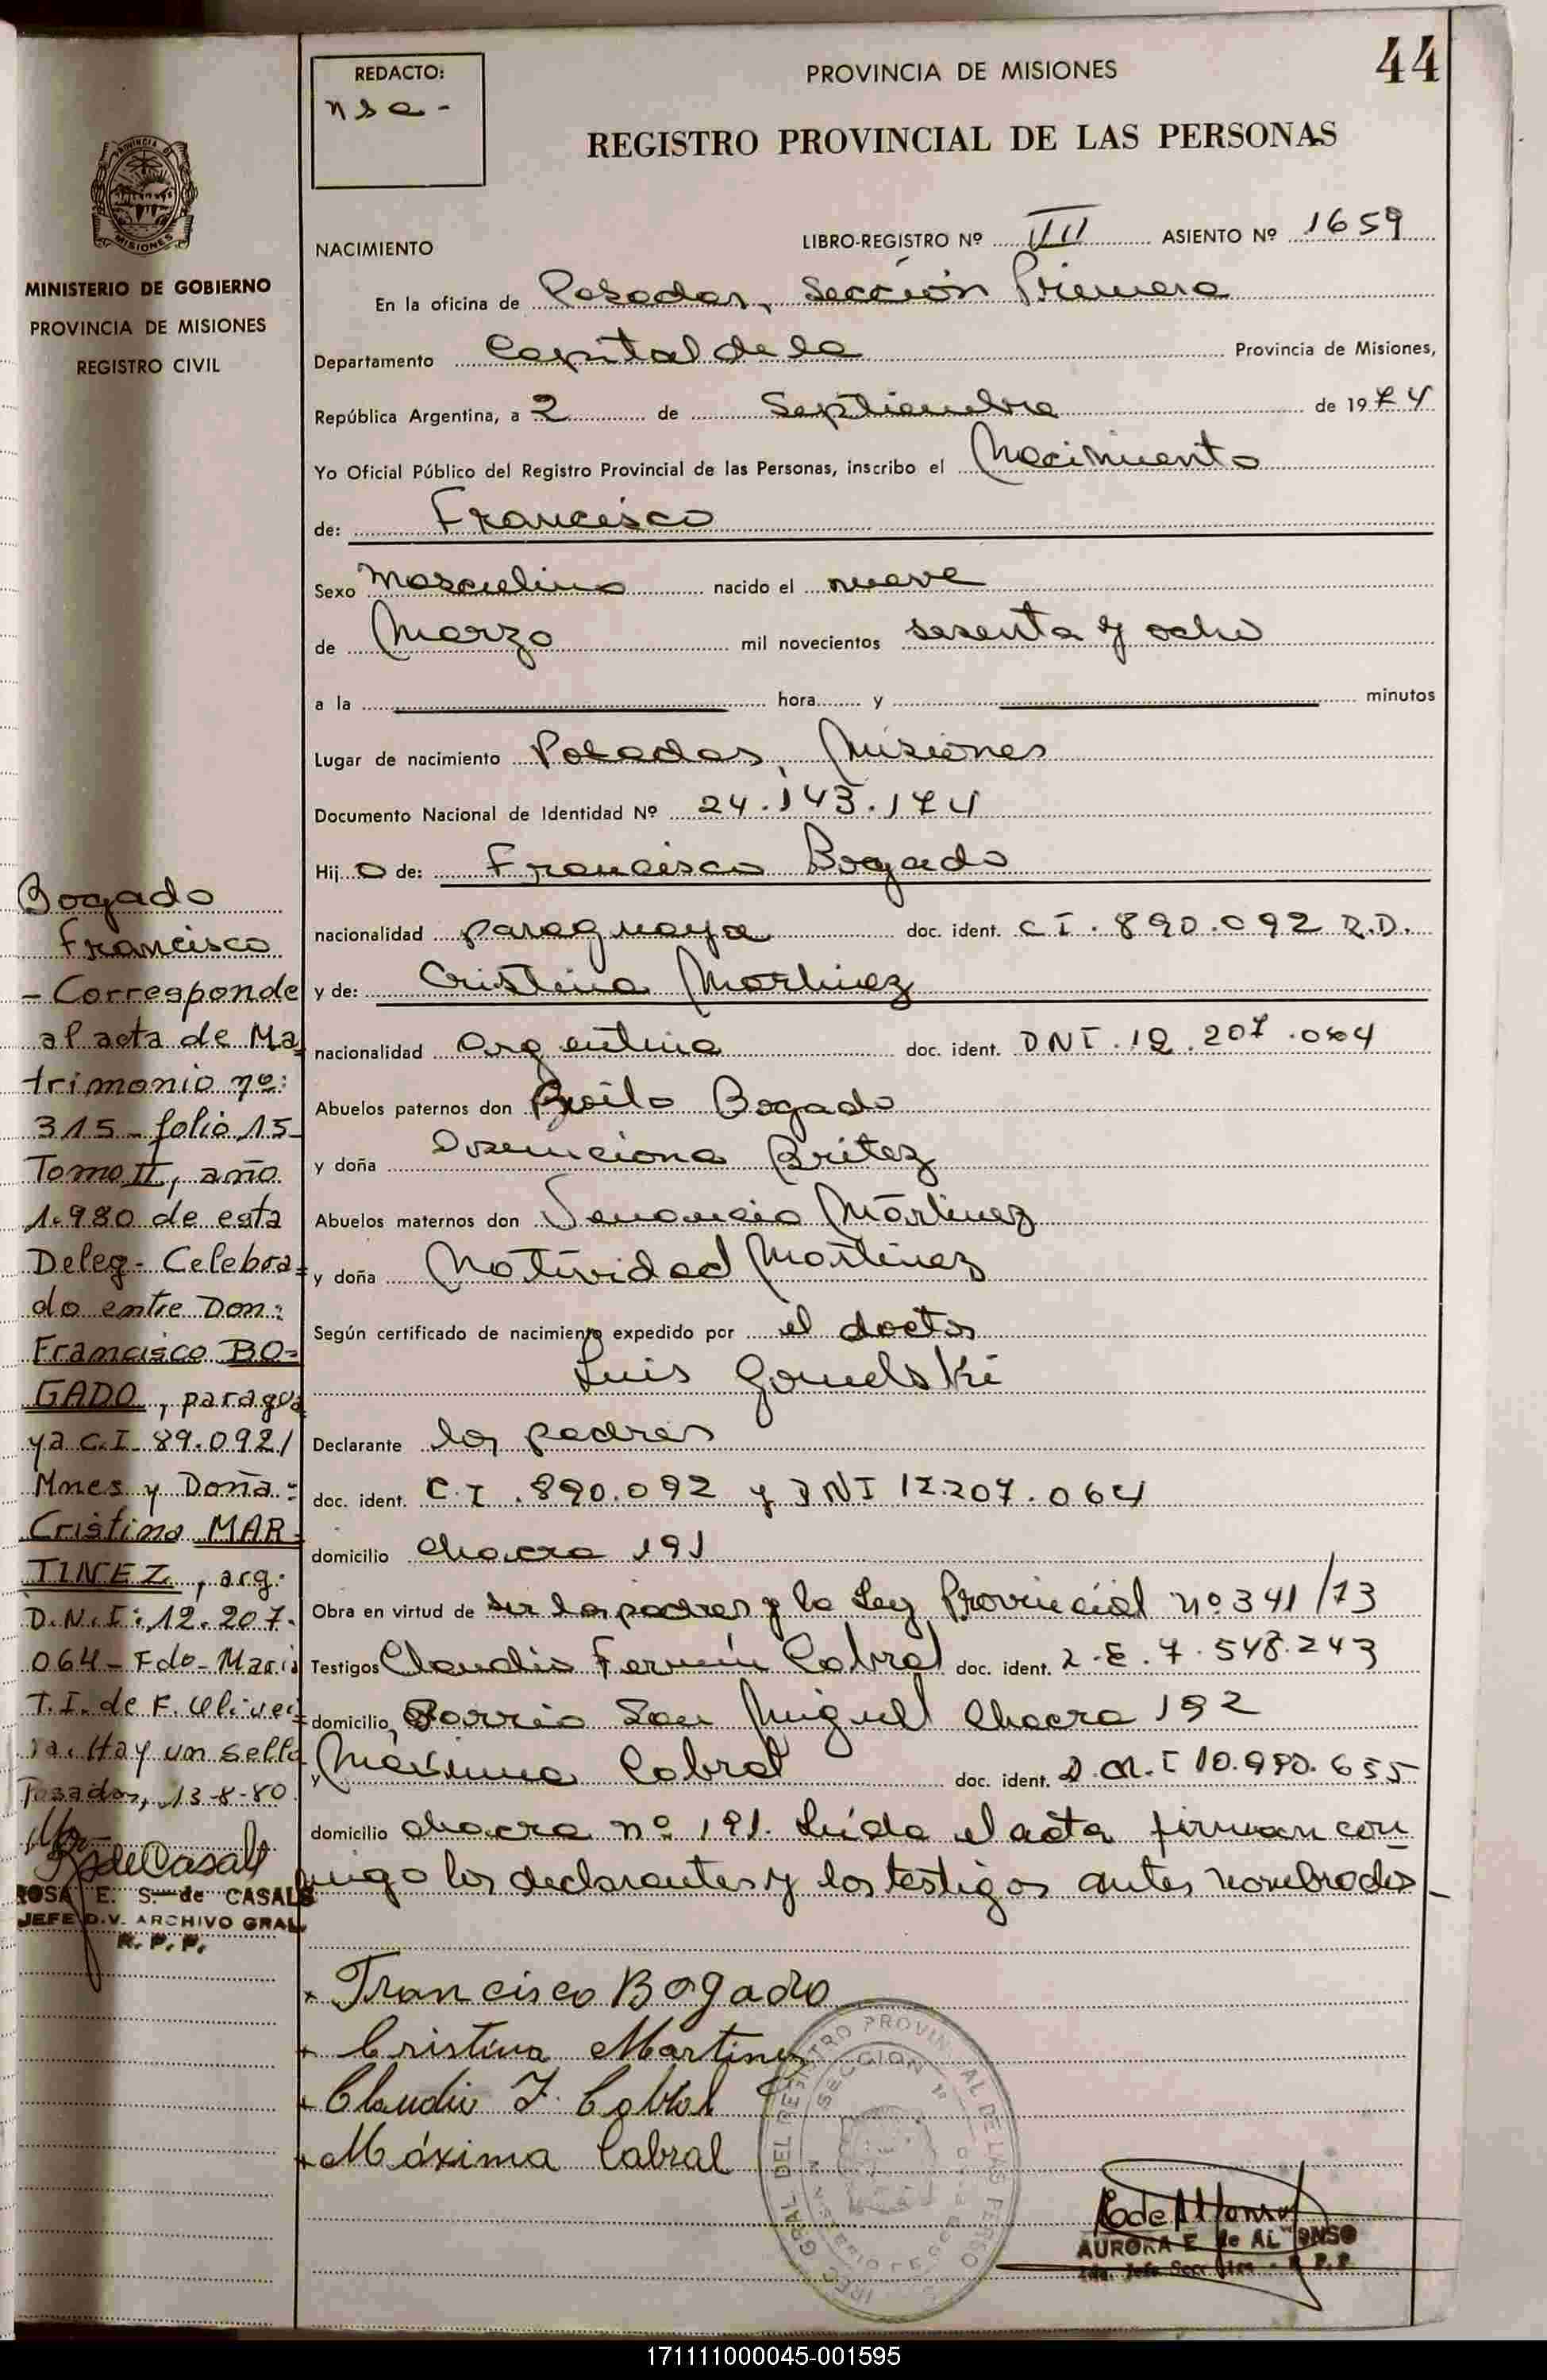 44
REDACTO:
nsa-
PROVINCIA DE MISIONES
REGISTRO PROVINCIAL DE LAS PERSONAS
PROVINCIA DE
MISIONES
MINISTERIO DE GOBIERNO
PROVINCIA DE MISIONES
REGISTRO CIVIL
NACIMIENTO LIBRO-REGISTRO Nº VII ASIENTO Nº 1659
En la oficina de Posadas, Sección Primera
Departamento Capital de la Provincia de Misiones,
República Argentina, a 2 de Septiembre de 1974
Yo Oficial Público del Registro Provincial de las Personas, inscribo el Nacimiento
de: Francisco
Sexo Masculino nacido el nueve
de Marzo mil novecientos sesenta y ocho
a la hora y minutos
Lugar de nacimiento Posadas, Misiones
Documento Nacional de Identidad Nº 24.143.174
Hijo de: Francisco Bogado
nacionalidad paraguaya doc. ident. CI. 890.092 R.D.
y de: Cristina Martinez
nacionalidad Argentina doc. ident. DNI. 12.207.064
Abuelos paternos don Bogado
y doña Britez
Abuelos maternos don Venancio Mártinez
y doña Natividad Martinez
Según certificado de nacimiento expedido por el doctor
Luis
Declarante los padres
doc. ident. C.I. 890.092 y DNI 12.207.064
domicilio chacra 191
Obra en virtud de ser los padres y la Ley Provincial nº 341/73
Testigos Claudio Fermín Cabral doc. ident. L.E. 7.548.243
domicilio, Barrio San Miguel Chacra 192
y Máxima Cabral doc. ident. D.N.I 10.990.655
domicilio chacra nº 191. Leída el acta firman con
migo los declarantes y los testigos antes nombrados-
x Francisco Bogado
x Cristina Martinez
x Claudio F. Cabral
x Máxima Cabral
AURORA E de ALFONSO
Bogado
Francisco
- Corresponde
al acta de Ma=
trimonio nº:
315 - folio 15-
Tomo II, año
1.980 de esta
Deleg- Celebra=
do entre Don:
Francisco BO-
GADO, paragua
ya C.I. 89.092/
Mnes y Doña:
Cristina MAR-
TINEZ, arg.
D.N.I: 12.207.
064 - Fdo- Maria
T.I. de F. Olivei=
ra. Hay un sello
Posadas, 13-8-80
R de Casals
ROSA E. S. de CASALS
JEFE D.V. ARCHIVO GRAL.
R. P. P.
171111000045-001595